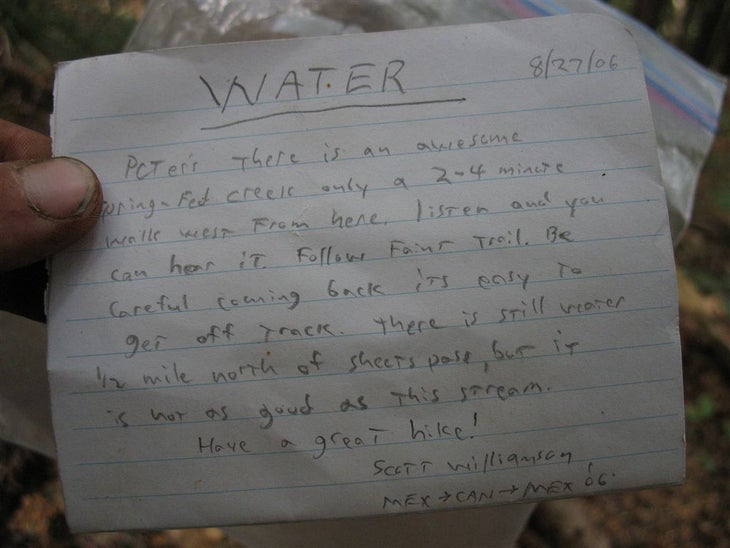 WATER
8/27/06
PCTer's There is an awesome
spring-fed creek only a 2-4 minute
walk west from here, listen and you
can hear it. Follow Faint Trail. Be
careful coming back its easy to
get off track. There is still water
1/2 mile north of sheets pass, but it
is not as good as this stream.
Have a great hike!
Scott Williamson
MEX → CAN → MEX '06.